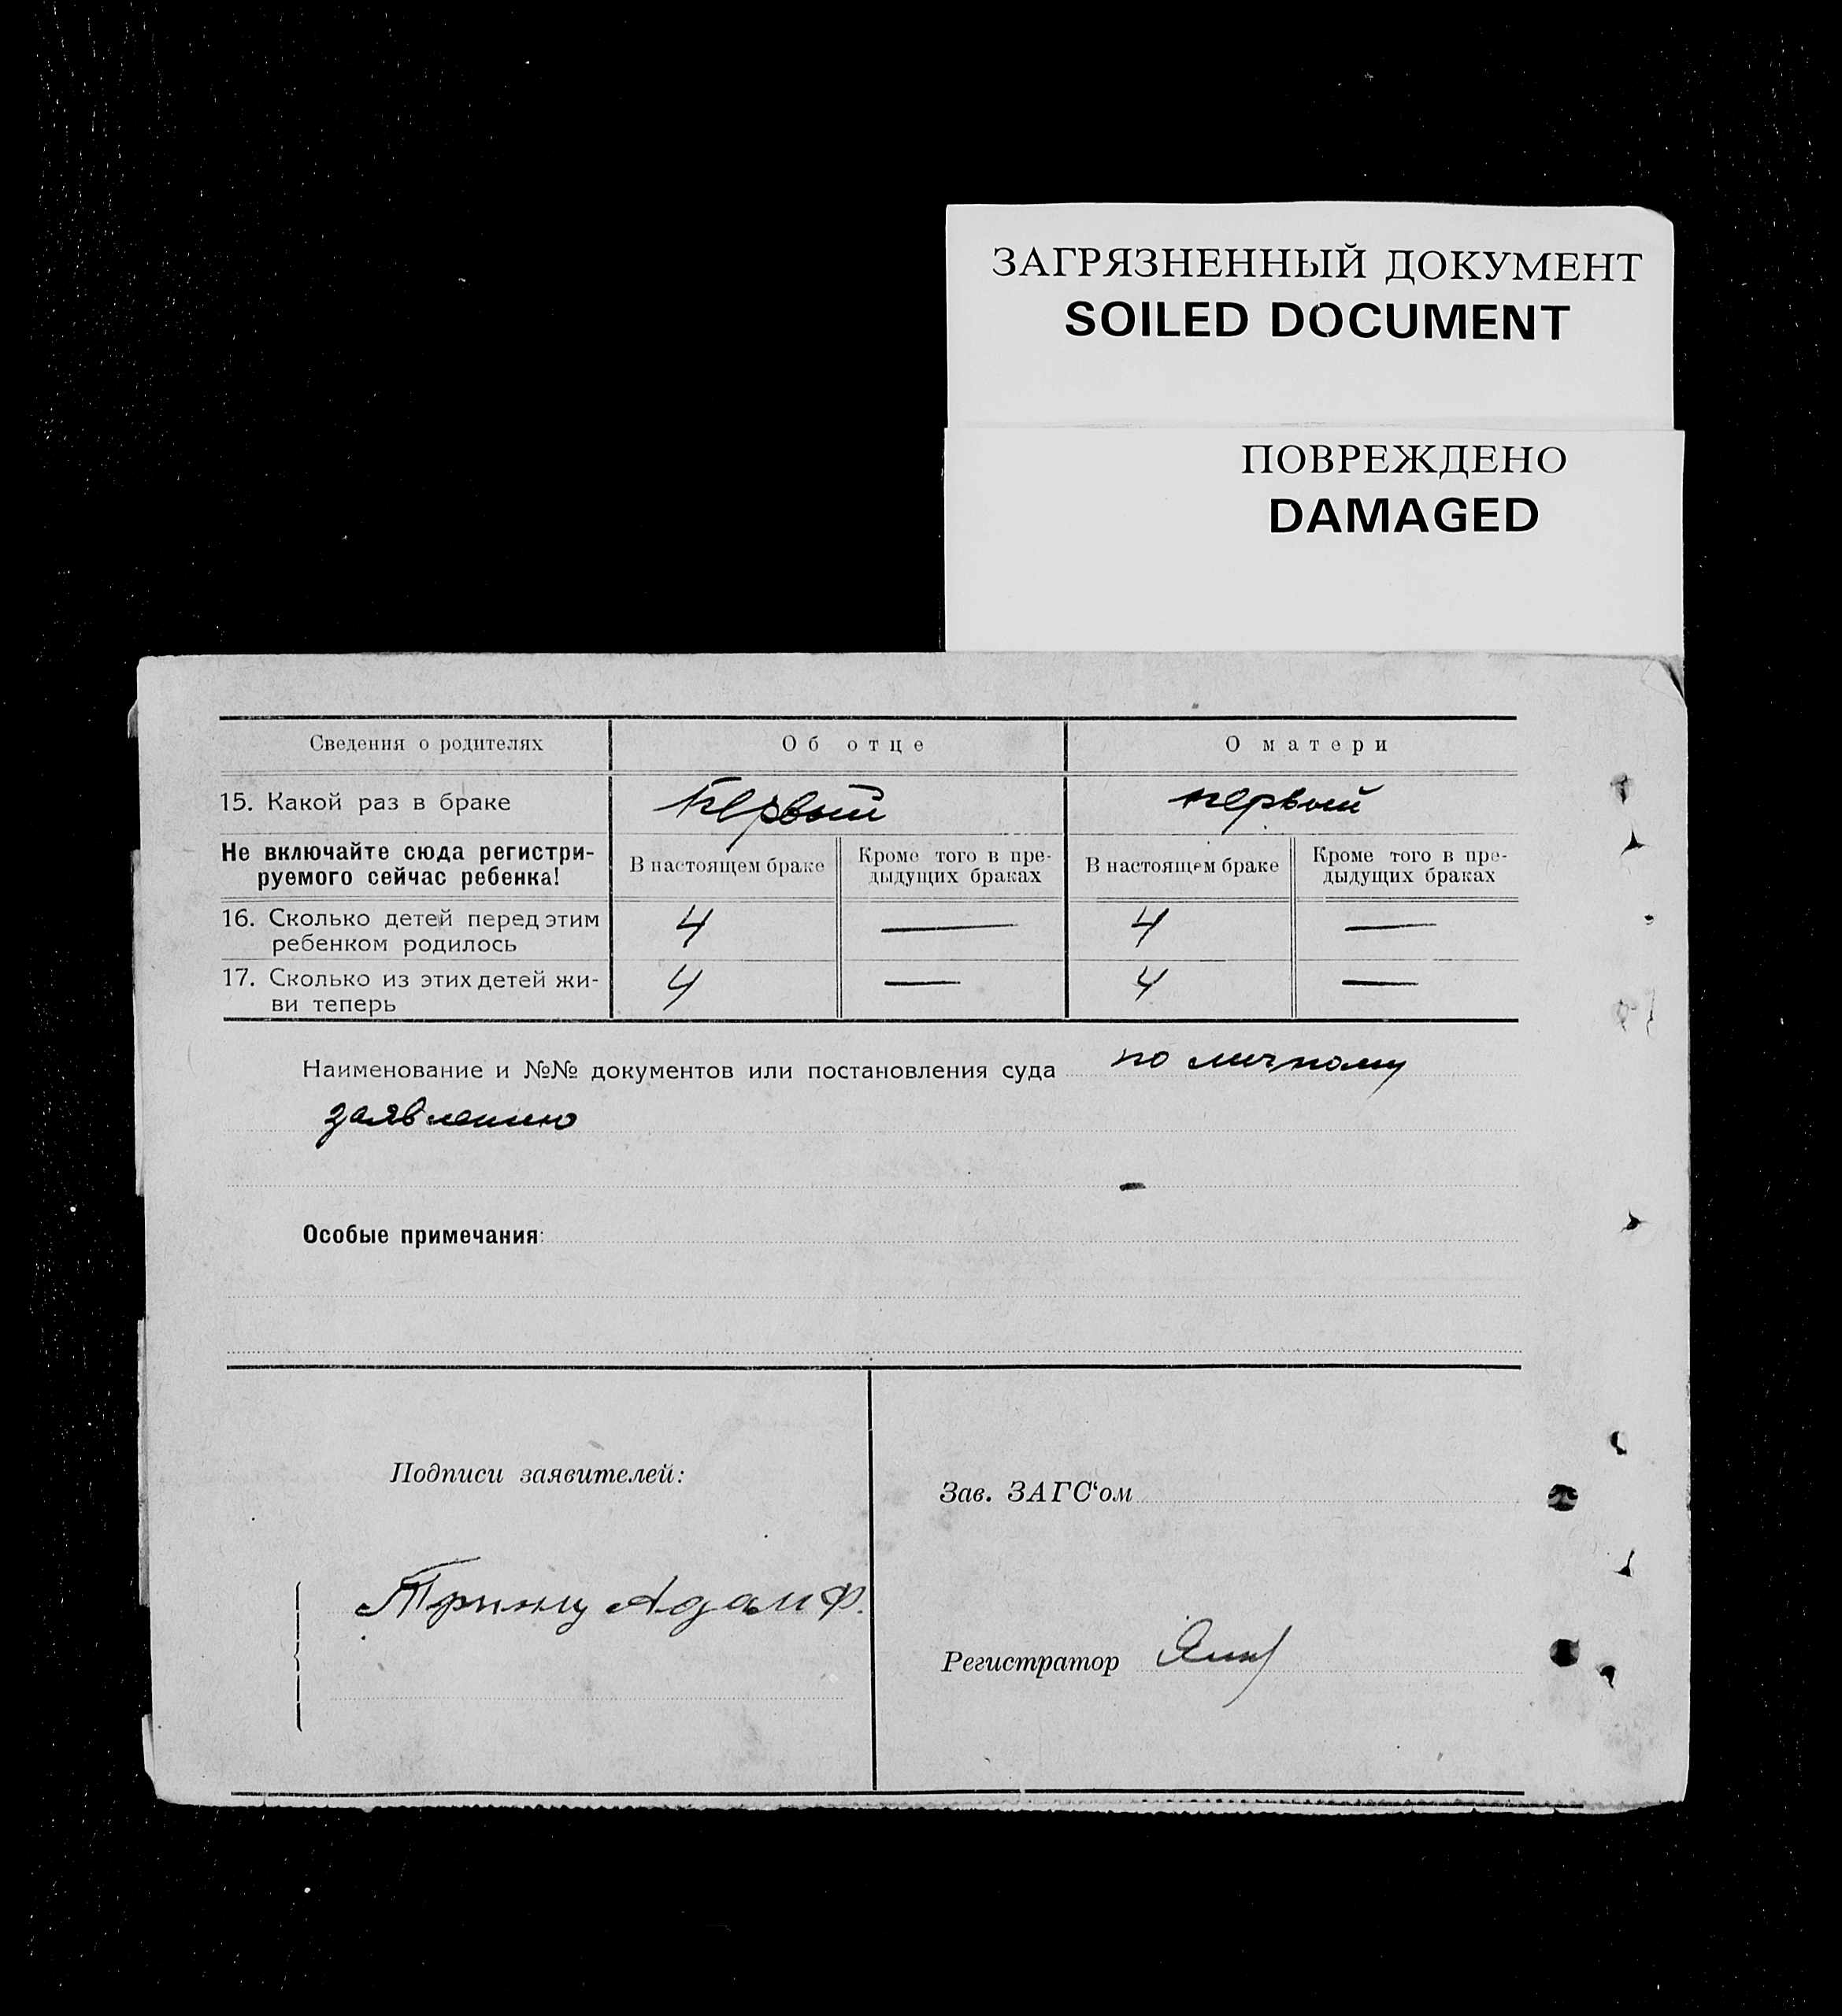 ЗАГРЯЗНЕННЫЙ ДОКУМЕНТ
SOILED DOCUMENT
ПОВРЕЖДЕНО
DAMAGED
Сведения о родителях Об отце О матери
15. Какой раз в браке Первый первый
Не включайте сюда регистри-
руемого сейчас ребенка!
В настоящем браке
Кроме того в пре-
дыдущих браках
В настоящем браке
Кроме того в пре-
дыдущих браках
16. Сколько детей перед этим
ребенком родилось
4 — 4 —
17. Сколько из этих детей жи-
ви теперь
4 — 4 —
Наименование и №№ документов или постановления суда по личному
заявлению
Особые примечания:
Подписи заявителей:
Принц Адам Ф.
Зав. ЗАГС‘ом
Регистратор